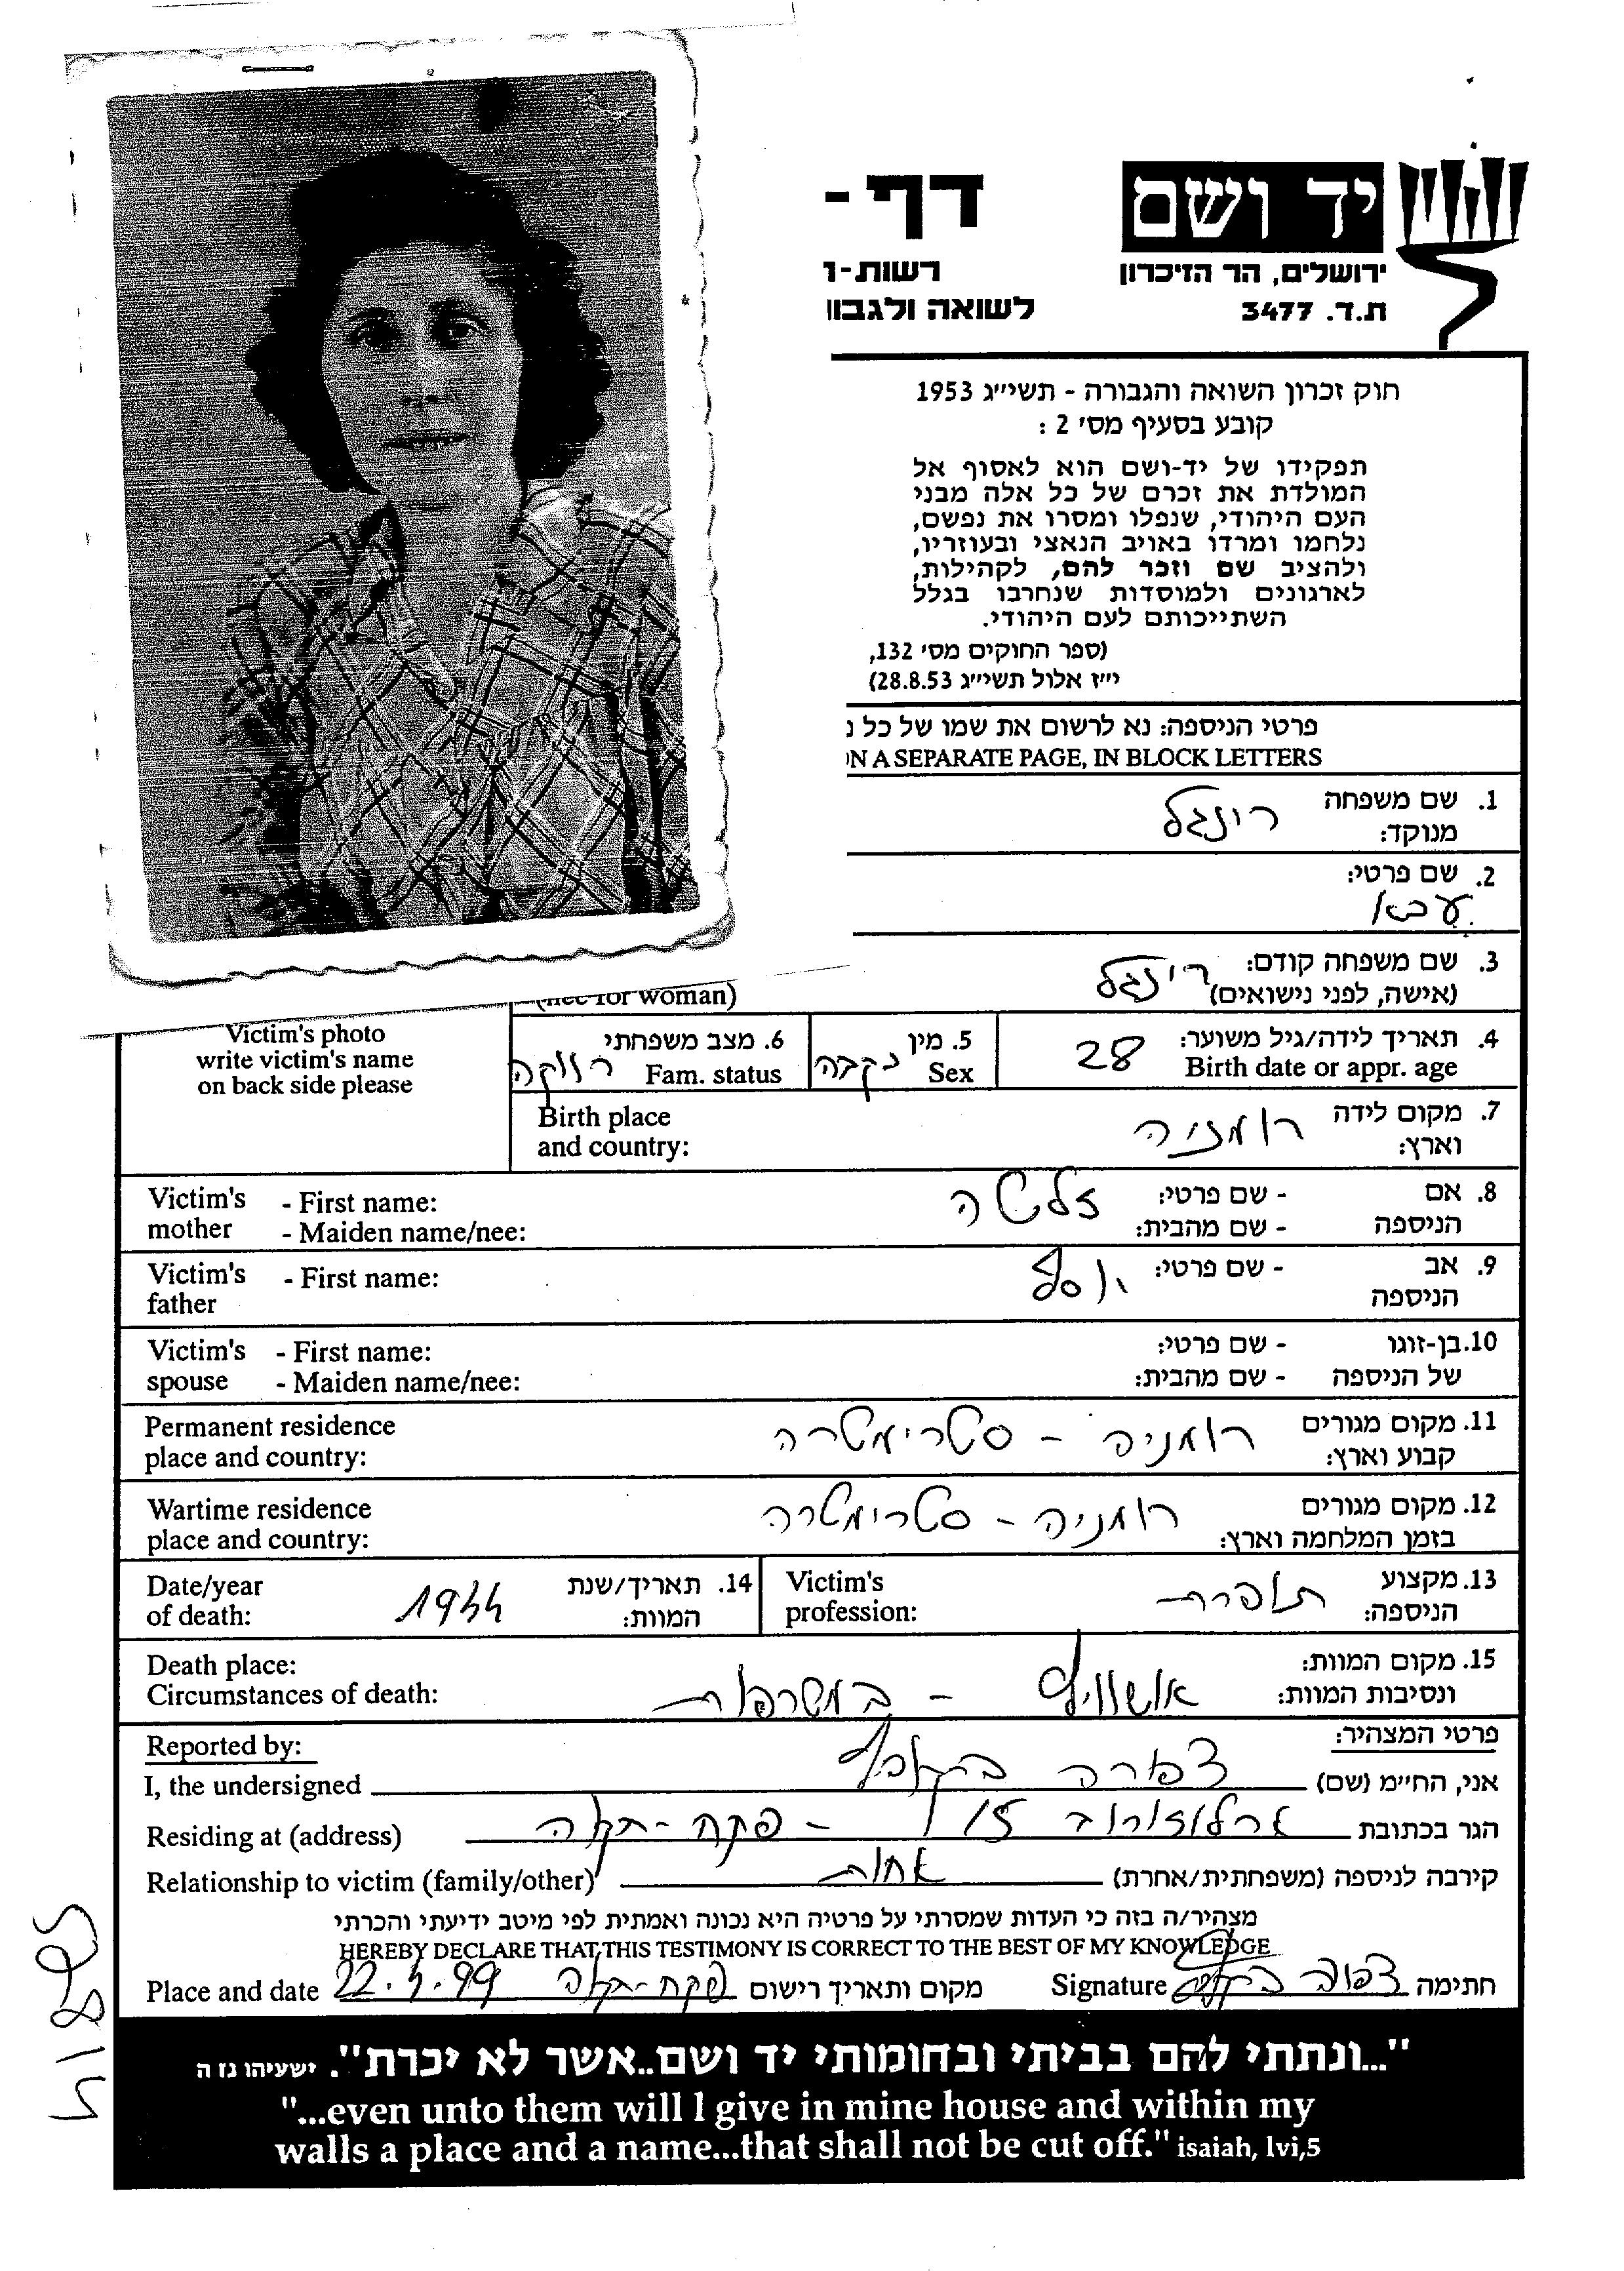 יד ושם
ירושלים, הר הזיכרון
ת.ד. 3477
דף -
רשות-ו
לשואה ולגבוו
חוק זכרון השואה והגבורה - תשי״ג 1953
קובע בסעיף מס׳ 2 :
תפקידו של יד-ושם הוא לאסוף אל
המולדת את זכרם של כל אלה מבני
העם היהודי, שנפלו ומסרו את נפשם,
נלחמו ומרדו באויב הנאצי ובעוזריו,
ולהציב שם וזכר להם, לקהילות,
לארגונים ולמוסדות שנחרבו בגלל
השתייכותם לעם היהודי.
(ספר החוקים מס׳ 132,
י״ז אלול תשי״ג 28.8.53)
פרטי הניספה: נא לרשום את שמו של כל נ
ON A SEPARATE PAGE, IN BLOCK LETTERS
1. שם משפחה רינגל
מנוקד:
2. שם פרטי:
3. שם משפחה קודם: רינגל
(אישה, לפני נישואים)
(nee for woman)
Victim's photo
write victim's name
on back side please
4. תאריך לידה/גיל משוער: 28
Birth date or appr. age
5. מין נקבה
Sex
6. מצב משפחתי רווקה
Fam. status
7. מקום לידה רומניה
וארץ:
Birth place
and country:
8. אם - שם פרטי: זלטה
הניספה - שם מהבית:
Victim's - First name:
mother - Maiden name/nee:
9. אב - שם פרטי: יוסף
הניספה
Victim's - First name:
father
10. בן-זוגו - שם פרטי:
של הניספה - שם מהבית:
Victim's - First name:
spouse - Maiden name/nee:
11. מקום מגורים רומניה - סטרימטרה
קבוע וארץ:
Permanent residence
place and country:
12. מקום מגורים רומניה - סטרימטרה
בזמן המלחמה וארץ:
Wartime residence
place and country:
13. מקצוע תופרת
הניספה:
Victim's
profession:
14. תאריך/שנת 1944
המוות:
Date/year
of death:
15. מקום המוות: אושוויץ - במשרפות
ונסיבות המוות:
Death place:
Circumstances of death:
פרטי המצהיר:
Reported by:
אני, החיימ (שם) צפורה ברקוביץ
I, the undersigned
הגר בכתובת ארלוזורוב 15 - פתח-תקוה
Residing at (address)
קירבה לניספה (משפחתית/אחרת) אחות
Relationship to victim (family/other)
מצהיר/ה בזה כי העדות שמסרתי על פרטיה היא נכונה ואמתית לפי מיטב ידיעתי והכרתי
HEREBY DECLARE THAT THIS TESTIMONY IS CORRECT TO THE BEST OF MY KNOWLEDGE
חתימה צפורה ברקוביץ Signature
מקום ותאריך רישום פתח-תקוה 22.4.99 Place and date
"...ונתתי להם בביתי ובחומותי יד ושם..אשר לא יכרת". ישעיהו נז ה
"...even unto them will I give in mine house and within my
walls a place and a name...that shall not be cut off." isaiah, lvi,5